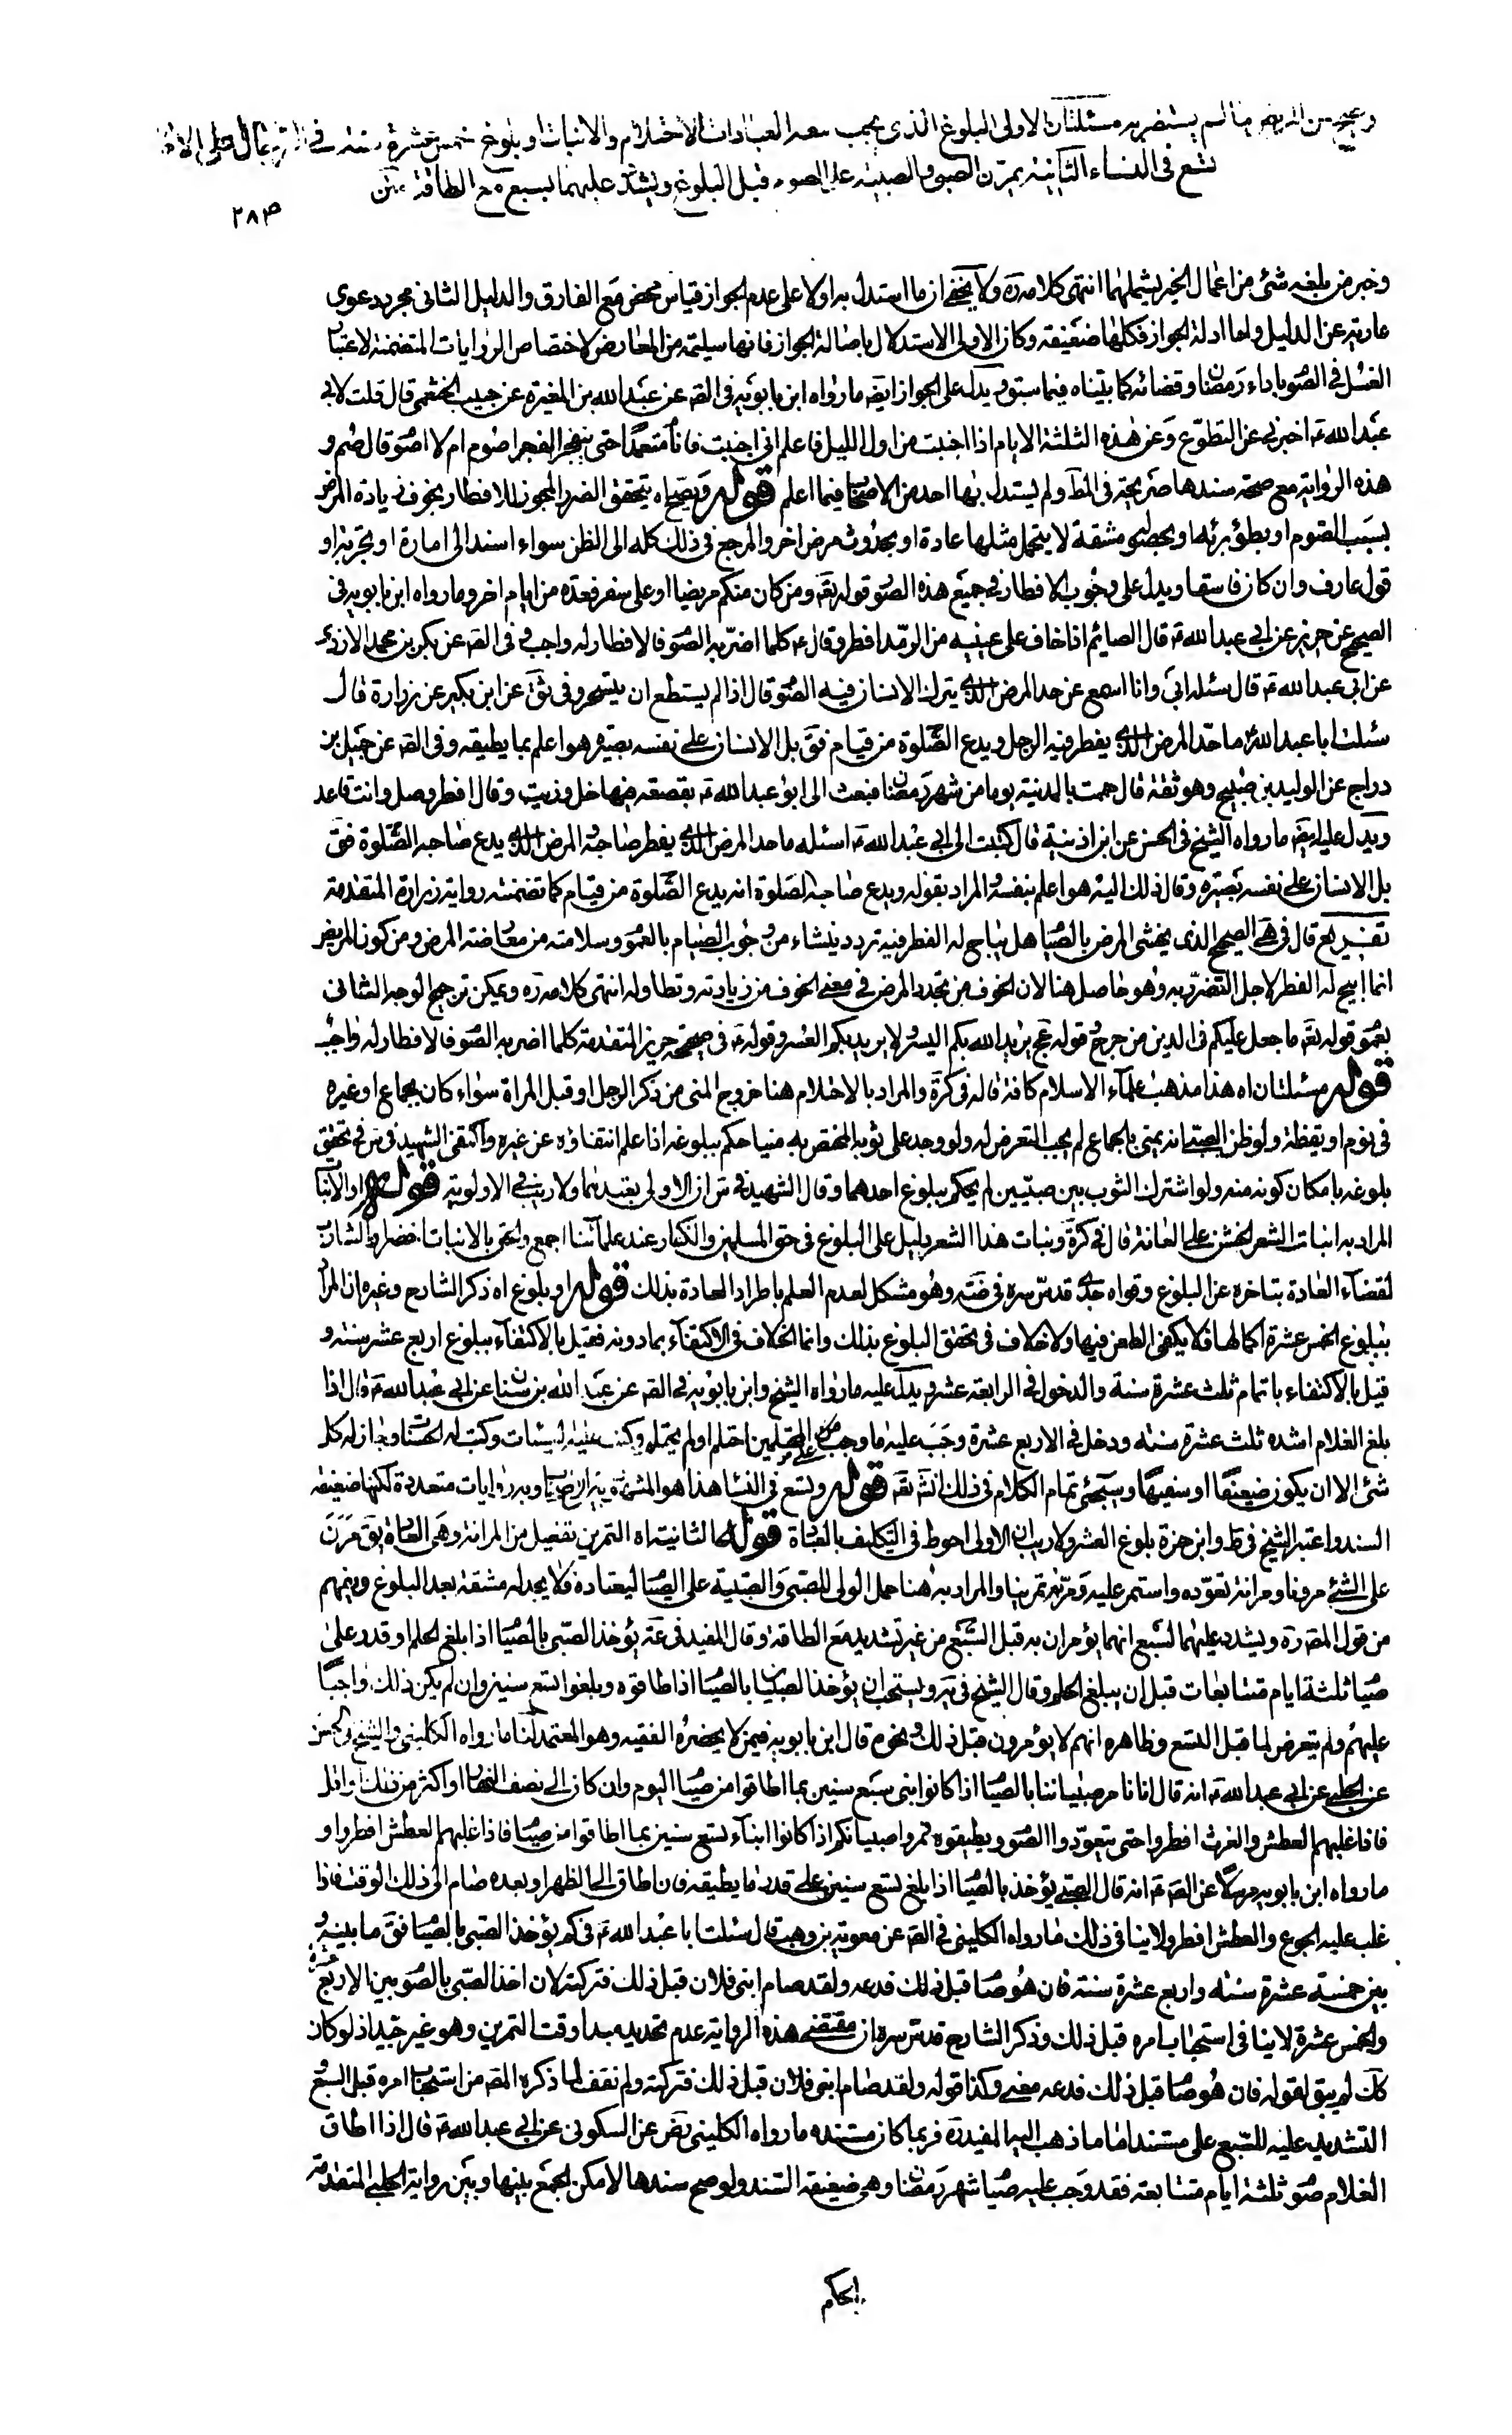 ويصح من المريض ما لم يستضر به مسئلتان الاولى البلوغ الذى يجب معه العبادات الاحتلام والانبات او بلوغ خمس عشرة سنة فى الرجال على الاظهر
تسع فى النساء الثانية يمرن الصبى والصبية على الصوم قبل البلوغ ويشدد عليهما لسبع مع الطاقة
٢٨٣
وخبر من بلغه شئ من اعمال الخير يشملهما انتهى كلامه ره ولا يخفى ان ما استدل به اولا على عدم الجواز قياس محض مع الفارق والدليل الثانى مجرد دعوى
عارية عن الدليل واما ادلة الجواز فكلها ضعيفة وكان الاولى الاستدلال باصالة الجواز فانها سليمة من المعارض لاختصاص الروايات المتضمنة لاعتبار
الغسل فى الصو باداء رمضان وقضائه كما بيناه فيما سبق ويدل على الجواز ايضا ما رواه ابن بابويه فى الصه عن عبد الله بن المغيرة عن حبيب الخثعمى قال قلت لابى
عبد الله ع اخبرنى عن التطوع وعن هذه الثلثة الايام اذا اجنبت من اول الليل فاعلم انى اجنبت فانام متعمدا حتى ينفجر الفجر اصوم ام لا اصو قال صم و
هذه الرواية مع صحة سندها صريحة فى المط ولم يستدل بها احد من الاصحاب فيما اعلم قوله ويصح اه يتحقق الضرر المجوز للافطار بخوف زيادة المرض
بسبب الصوم او بطؤ برئه او بحصو مشقة لا يتحمل مثلها عادة او بحدوث مرض اخر والمرجع فى ذلك كله الى الظن سواء اسند الى امارة او تجربة او
قول عارف وان كان فاسقا ويدل على وجوب الافطار فى جميع هذه الصو قوله تعه ومن كان منكم مريضا او على سفر فعدة من ايام اخر وما رواه ابن بابويه فى
الصحيح عن حريز عن ابى عبد الله ع قال الصائم اذا خاف على عينيه من الرمد افطر وقال ع كلما اضر به الصو فالافطار له واجب وفى الصه عن بكر بن محمد الازدى
عن ابى عبد الله ع قال سئله ابى وانا اسمع عن حد المرض الذى يترك الانسان فيه الصو قال اذا لم يستطع ان يتسحر وفى ثق عن ابن بكير عن زرارة قال
سئلت ابا عبد الله ع ما حد المرض الذى يفطر فيه الرجل ويدع الصلوة من قيام فق بل الانسان على نفسه بصيرة هو اعلم بما يطيقه وفى الصه عن جميل بن
دراج عن الوليد بن صبيح وهو ثقة قال حممت بالمدينة يوما من شهر رمضان فبعث الى ابو عبد الله ع بقصعة فيها خل وزيت وقال افطر وصل وانت قاعد
ويدل عليه ايضا ما رواه الشيخ فى الحسن عن ابن اذينة قال كتبت الى ابى عبد الله ع اسئله ما حد المرض الذى يفطر صاحبه والمرض الذى يدع صاحبه الصلوة فق
بل الانسان على نفسه بصيرة وقال ذلك اليه هو اعلم بنفسه والمراد بقوله ويدع صاحبه الصلوة انه يدع الصلوة من قيام كما تضمنته رواية زرارة المتقدمة
تفريع قال فى هى الصحيح الذى يخشى المرض بالصيا هل يباح له الفطر فيه تردد ينشاء من وجوب الصيام بالعمو وسلامته من معارضة المرض ومن كون المريض
انما ابيح له الفطر لاجل التضرر به وهو حاصل هنا لان الخوف من تجدد المرض فى معنى الخوف من زيادته وتطاوله انتهى كلامه ره ويمكن ترجيح الوجه الثانى
بعمو قوله تعه ما جعل عليكم فى الدين من حرج وقوله عج يريد الله بكم اليسر ولا يريد بكم العسر وقوله ع فى صحيحة حريز المتقدمة كلما اضر به الصو فالافطار له واجب
قوله مسئلتان اه هذا مذهب علماء الاسلام كافة قاله فى كرة والمراد بالاحتلام هنا خروج المنى من ذكر الرجل او قبل المراة سواء كان بجماع او غيره
فى نوم او يقظة ولو ظن الصبى انه يمنى بالجماع لم يجب التعرض له ولو وجد على ثوبه المختص به منيا حكم ببلوغه اذا علم انتفاؤه عن غيره واكتفى الشهيد فى س فى تحقق
بلوغه بامكان كونه منه ولو اشترك الثوب بين صبيين لم يحكم ببلوغ احدهما وقال الشهيد فى س ان الاولى تعبدهما ولا ريب فى الاولوية قوله او الانبات
المراد به انبات الشعر الخشن على العانة قال فى كرة ونبات هذا الشعر دليل على البلوغ فى حق المسلمين والكفار عند علمائنا اجمع والحق بالانبات اخضرار الشارب
لقضاء العادة بتاخره عن البلوغ وقواه جدى قدس سره فى ضه وهو مشكل لعدم العلم باطراد العادة بذلك قوله او بلوغ اه ذكر الشارح وغيره ان المراد
ببلوغ الخمس عشرة اكمالها فلا يكفى الطعن فيها ولا خلاف فى تحقق البلوغ بذلك وانما الخلاف فى الاكتفاء بما دونه فقيل بالاكتفاء ببلوغ اربع عشر سنة و
قيل بالاكتفاء باتمام ثلث عشرة سنة والدخول فى الرابعة عشر ويدل عليه ما رواه الشيخ وابن بابويه فى الصه عن عبد الله بن سنان عن ابى عبد الله ع قال اذا
بلغ الغلام اشده ثلث عشرة سنة ودخل فى الاربع عشرة وجب عليه ما وجب على المحتلمين احتلم او لم يحتلم وكتبت عليه السيئات وكتب له الحسنات وجاز له كل
شئ الا ان يكون ضعيفا او سفيها وسيجئ تمام الكلام فى ذلك انش تعه قوله وتسع فى النسا هذا هو المشهور بين الاصحاب وبه روايات متعددة لكنها ضعيفة
السند واعتبر الشيخ فى ط وابن حمزة بلوغ العشر ولا ريب ان الاولى احوط فى التكليف بالعبادة قوله الثانية اه التمرين تفعيل من المرانة وهى العادة يق مرن
على الشئ مرونا ومرانة تعوده واستمر عليه ومرنته تمرينا والمراد به هنا حمل الولى للصبى والصبية على الصيا ليعتاده فلا يجد له مشقة بعد البلوغ ويفهم
من قول المصه ره ويشدد عليهما لسبع انهما يؤمران به قبل السبع من غير تشديد مع الطاقة وقال المفيد فى عه يؤخذ الصبى بالصيا اذا بلغ الحلم او قدر على
صيا ثلثة ايام متتابعات قبل ان يبلغ الحلم وقال الشيخ فى يه ويستحب ان يؤخذ الصبيان بالصيا اذا طاقوه وبلغوا تسع سنين وان لم يكن ذلك واجبا
عليهم ولم يتعرض لما قبل التسع وظاهره انهم لا يؤمرون قبل ذلك ونحوه قال ابن بابويه فى من لا يحضره الفقيه وهو المعتمد لنا ما رواه الكلينى والشيخ فى الحسن
عن الحلبى عن ابى عبد الله ع انه قال انا نامر صبياننا بالصيا اذا كانوا ابنى سبع سنين بما اطاقوا من صيا اليوم وان كان الى نصف النها او اكثر من ذلك او اقل
فاذا غلبهم العطش والغرث افطروا حتى يتعودوا الصو ويطيقوه فمروا صبيانكم اذا كانوا ابناء تسع سنين بما اطاقوا من صيا فاذا غلبهم العطش افطروا و
ما رواه ابن بابويه مرسلا عن الصه ع انه قال الصبى يؤخذ بالصيا اذا بلغ تسع سنين على قدر ما يطيقه فان اطاق الى الظهر او بعده صام الى ذلك الوقت فاذا
غلب عليه الجوع والعطش افطر ولا ينافى ذلك ما رواه الكلينى فى الصه عن معوية بن وهب قال سئلت ابا عبد الله ع فى كم يؤخذ الصبى بالصيا فق ما بينه و
بين خمسة عشرة سنة واربع عشرة سنة فان هو صا قبل ذلك فدعه ولقد صام ابنى فلان قبل ذلك فتركته لان اخذ الصبى بالصو بين الاربع عشرة
والخمس عشرة لا ينافى استحباب امره قبل ذلك وذكر الشارح قدس سره ان مقتضى هذه الرواية عدم تحديد مبدا وقت التمرين وهو غير جيد اذ لو كان
كك لم يبق لقوله فان هو صا قبل ذلك فدعه معنى وكذا قوله ولقد صام ابنى فلان قبل ذلك فتركته ولم نقف لما ذكره المصه من استحباب امره قبل السبع و
التشديد عليه للسبع على مستند اما ما ذهب اليه المفيد ره فربما كان مستنده ما رواه الكلينى رض عن السكونى عن ابى عبد الله ع قال اذا اطاق
الغلام صو ثلثة ايام متتابعة فقد وجب عليه صيا شهر رمضان وهى ضعيفة السند ولو صح سندها لامكن الجمع بينها وبين رواية الحلبى المتقدمة
بحكم